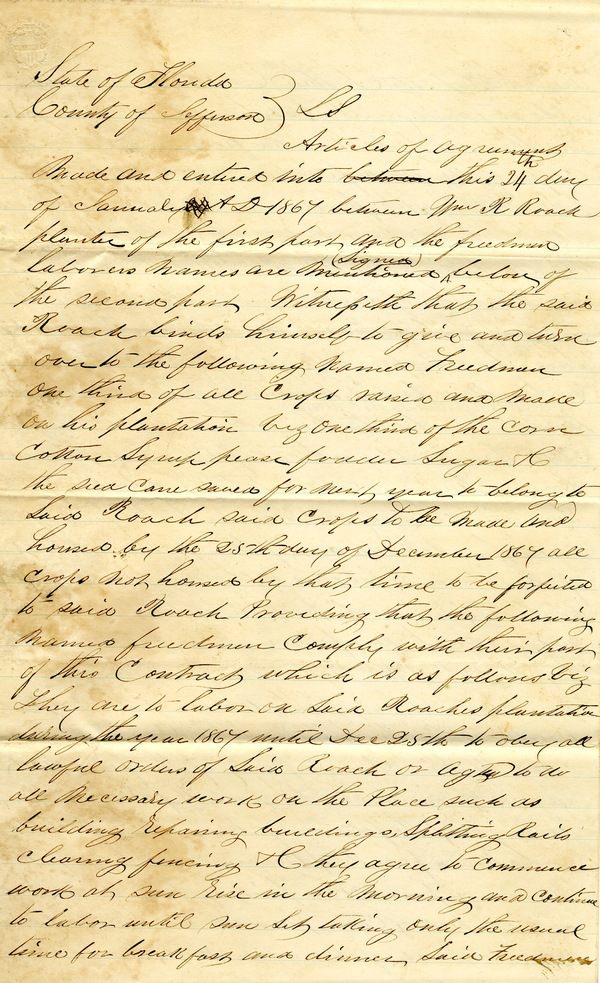 State of Florida
County of Jefferson } LS
Articles of agreement
Made and entered into between this 24th day
of Janualy A D 1867 between Wm R Roach
planter of the first part and the freedmen
(Signed)
laborers names are mentioned below of
the second part Witnesseth that the said
Roach binds himself to give and turn
over to the following named Freedmen
one third of all Crops raised and made
on his plantation viz one third of the corn
Cotton Syrup pease fodder Sugar &C
the seed cane saved for next year to belong to
Said Roach said crops to be made and
housed by the 25th day of December 1867 all
crops not housed by that time to be forfeited
to said Roach Providing that the following
named freedmen Comply with their part
of this Contract which is as follows viz
They are to labor on Said Roaches plantation
during the year 1867 until Dec 25th to obey all
lawful orders of Said Roach or agt to do
all necessary work on the Place such as
building repairing buildings, Splitting Rails
clearing fencing &C they agree to commence
work at sun rise in the morning and continue
to labor until sun set taking only the usual
time for breakfast and dinner Said Freedmen